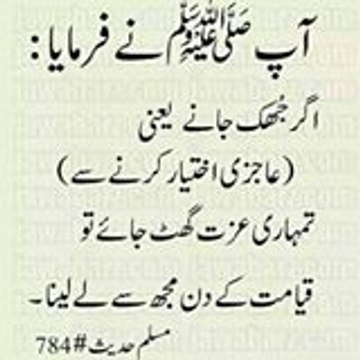 آپ ﷺ نے فرمایا:
اگر جھک جانے یعنی
(عاجزی اختیار کرنے سے)
تمہاری عزت گھٹ جائے تو
قیامت کے دن مجھ سے لے لینا۔
مسلم حدیث#784